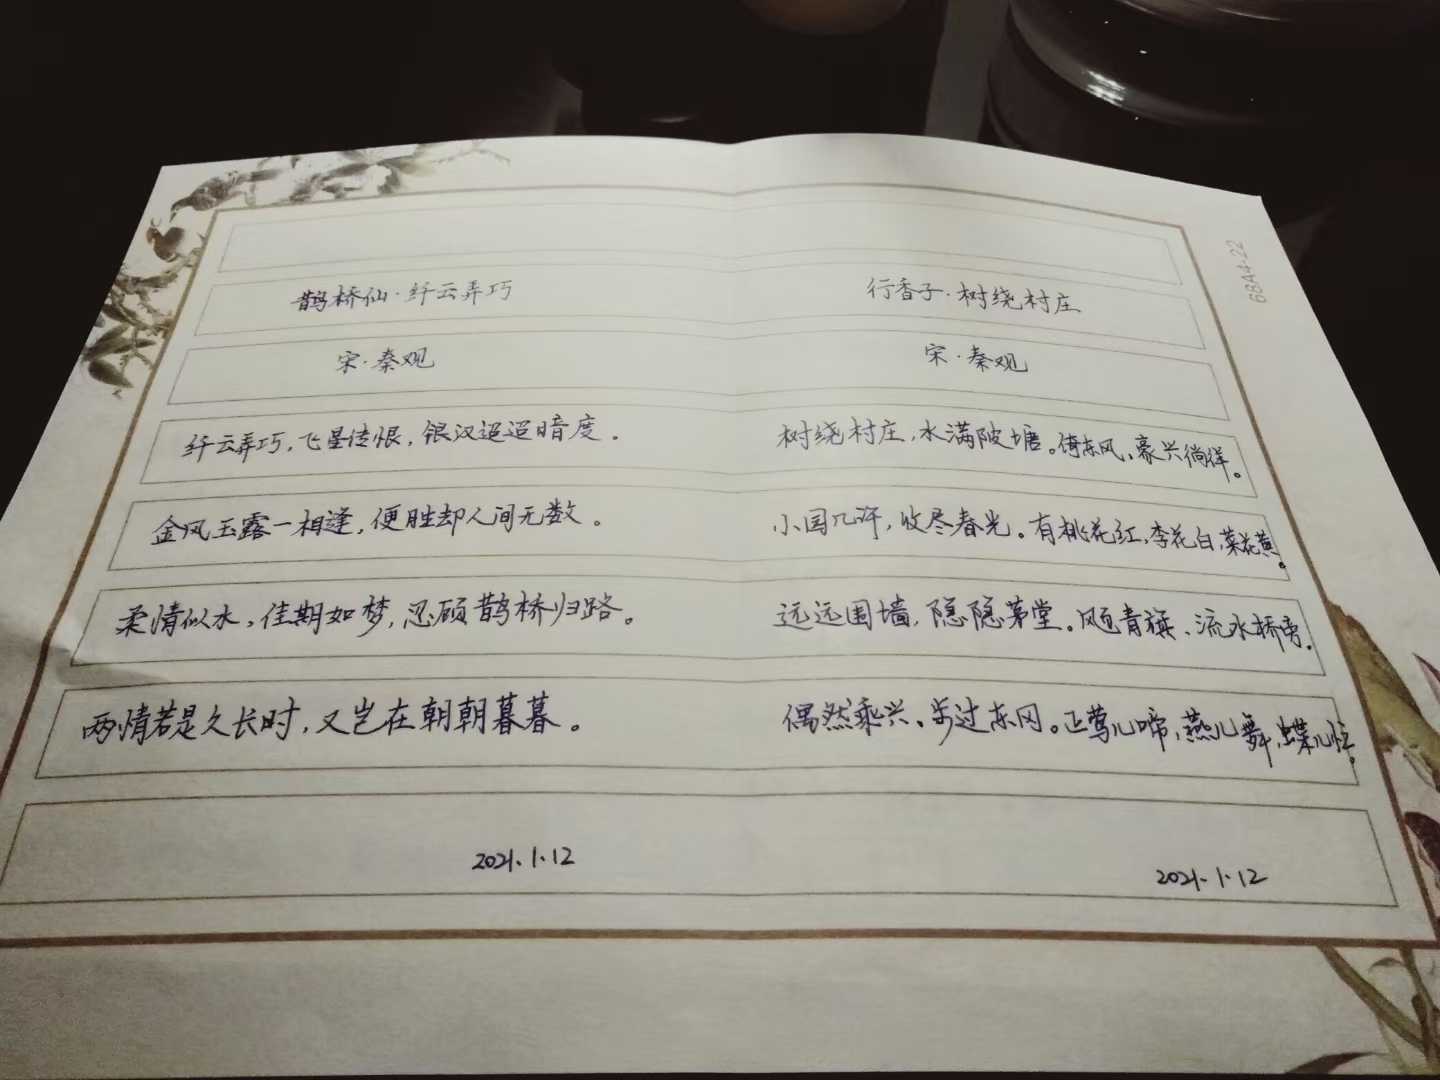 鹊桥仙·纤云弄巧
宋·秦观
纤云弄巧,飞星传恨,银汉迢迢暗度。
金风玉露一相逢,便胜却人间无数。
柔情似水,佳期如梦,忍顾鹊桥归路。
两情若是久长时,又岂在朝朝暮暮。
2021.1.12
行香子·树绕村庄
宋·秦观
树绕村庄,水满陂塘。倚东风、豪兴徜徉。
小园几许,收尽春光。有桃花红,李花白,菜花黄。
远远围墙,隐隐茅堂。飏青旗、流水桥旁。
偶然乘兴、步过东冈。正莺儿啼,燕儿舞,蝶儿忙。
2021.1.12
68A4-22